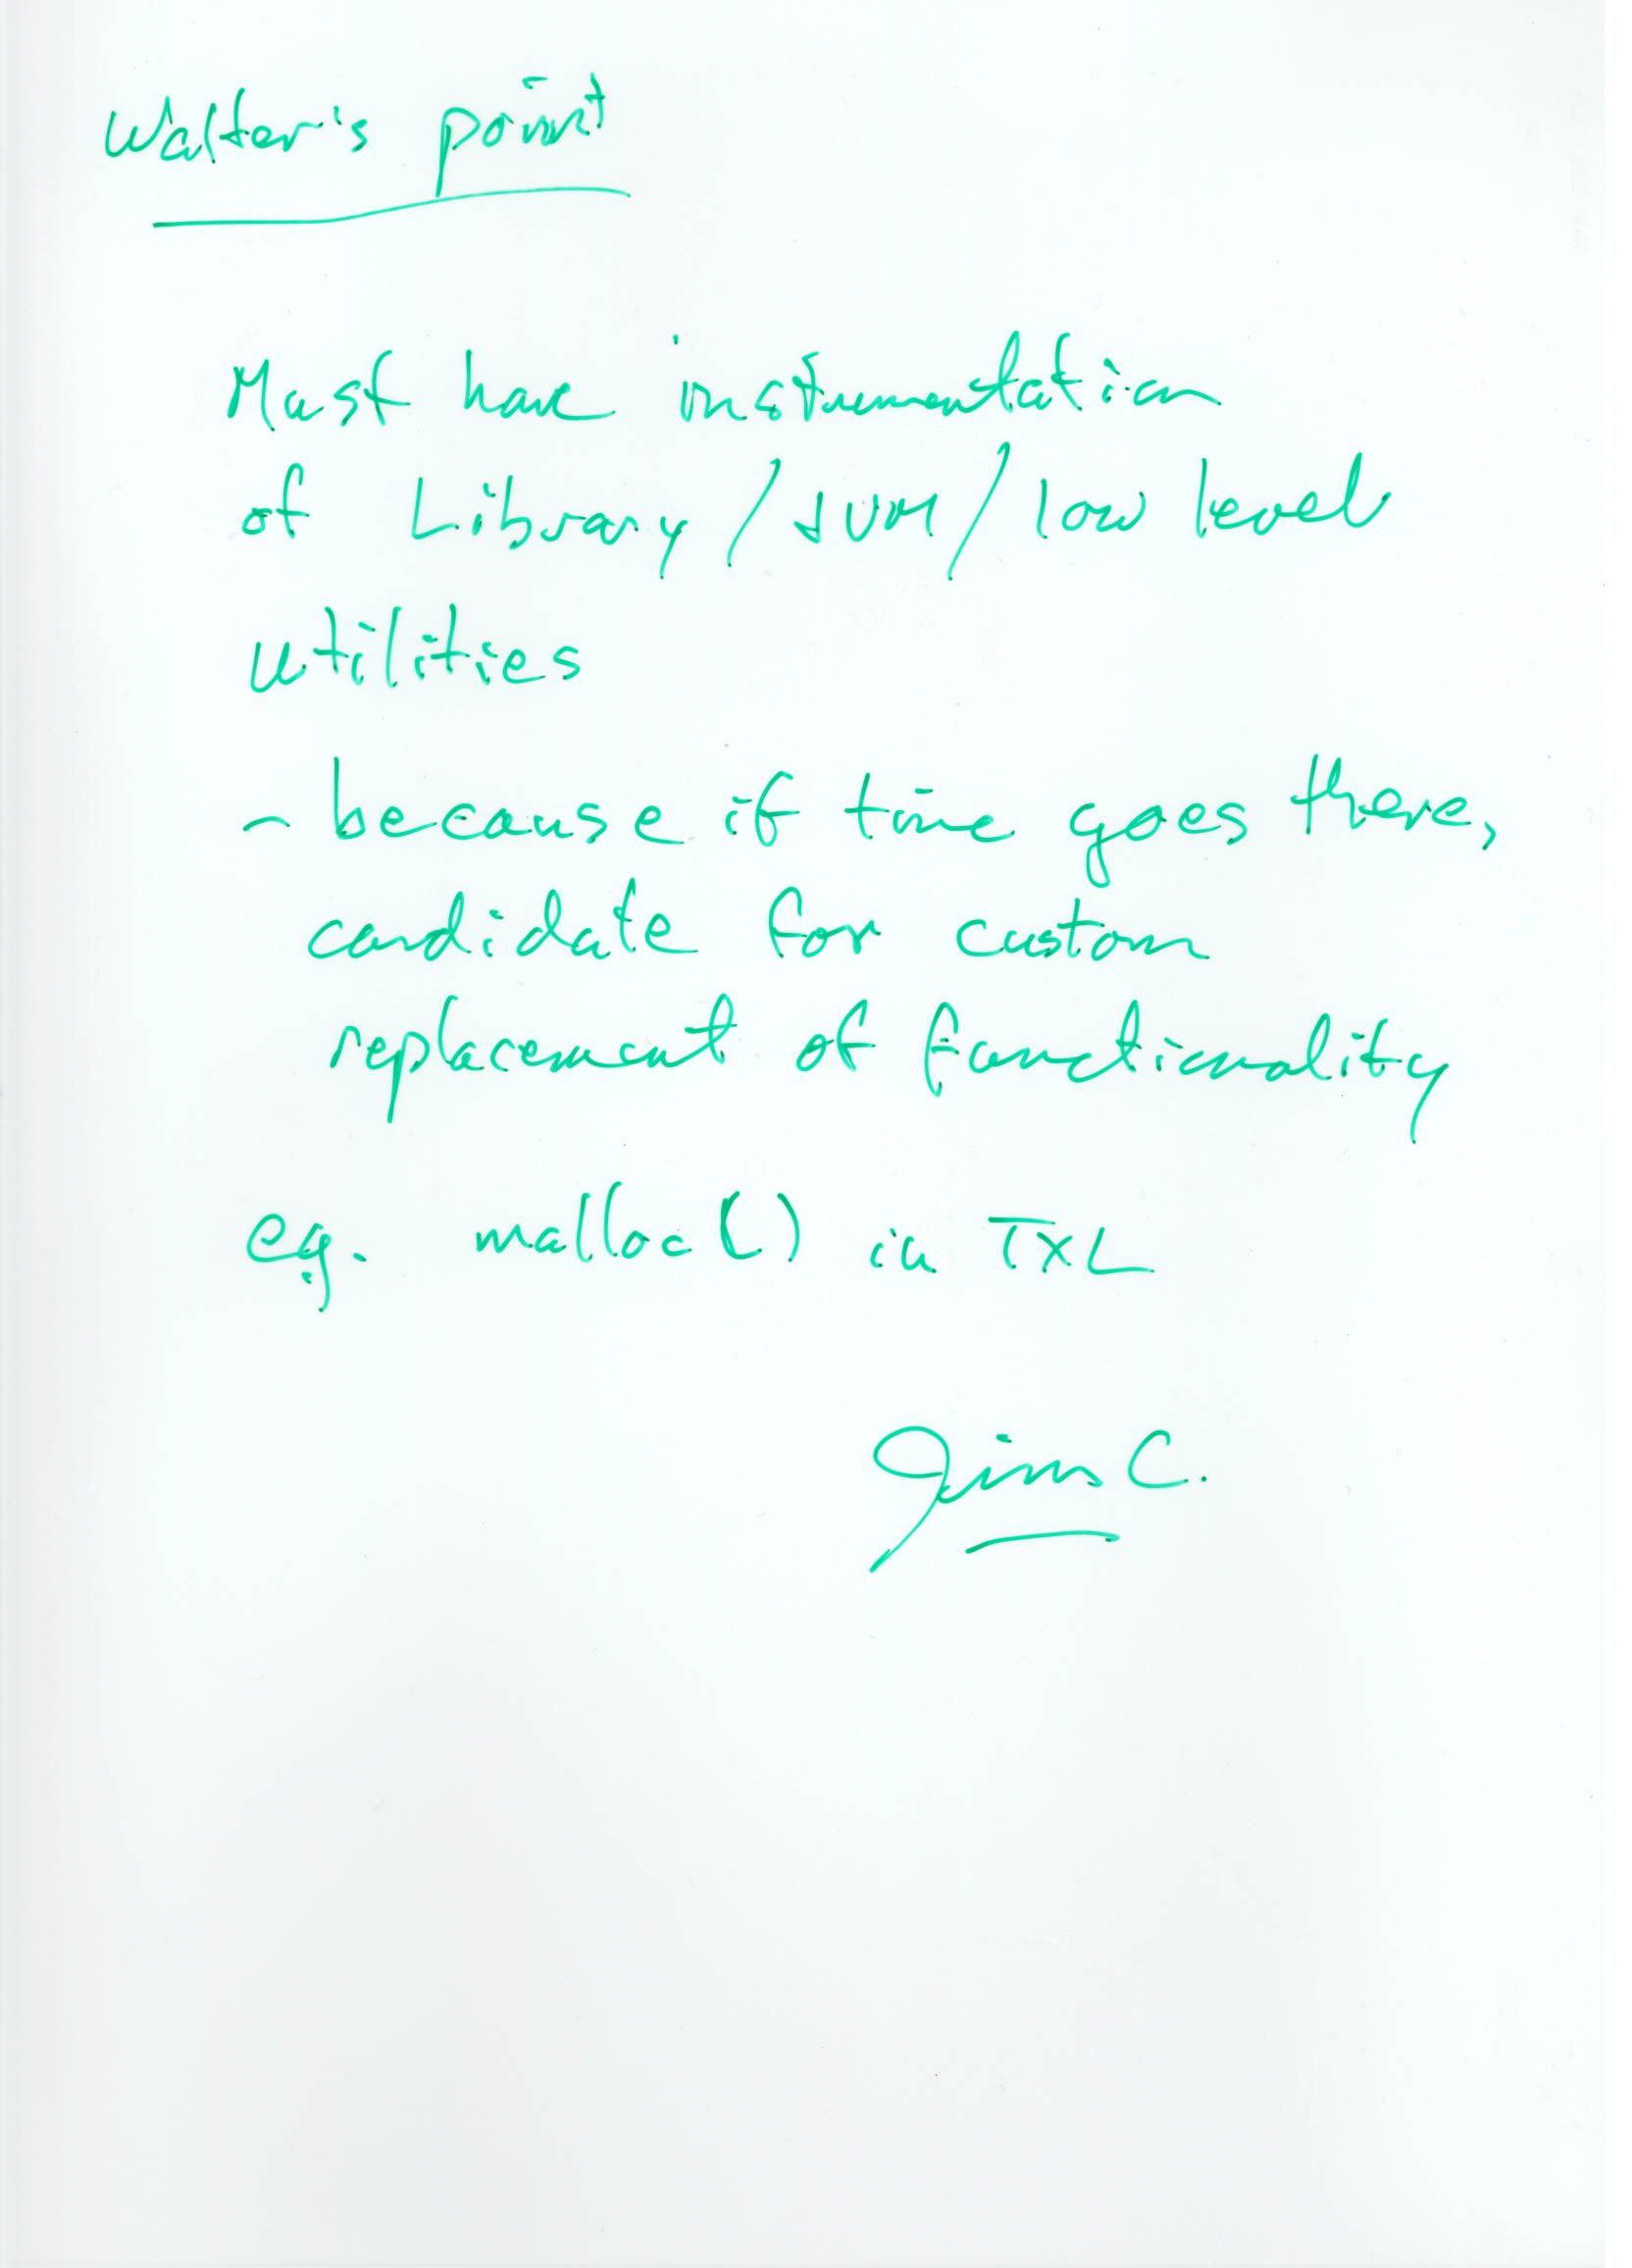 Walter's point
Must have instrumentation
of Library / JVM / low level
utilities
- because if time goes there,
candidate for custom
replacement of functionality
eg. malloc() in TXL
Jim C.